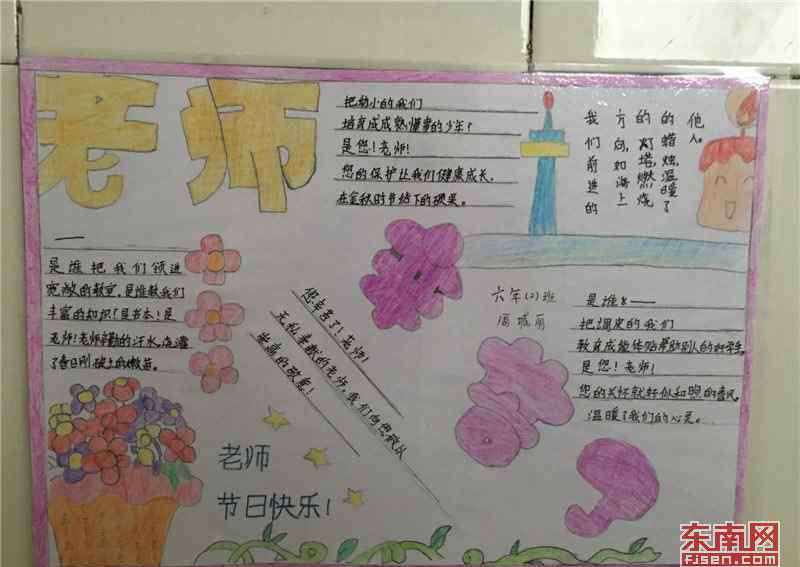 老师
把幼小的我们
培育成成熟懂事的少年?
是您!老师!
您的保护让我们健康成长。
在金秋时节结下的硕果。
他
的蜡烛,温暖了
的灯塔,燃烧
方向,如海上
我们前进的
一
是谁把我们领进
宽敞的教室,是谁教我们
丰富的知识?是书本!是
老师!老师辛勤的汗水,浇灌
了春日刚破土的嫩苗。
您辛苦了!老师!
无私奉献的老师,我们向您致以
崇高的敬意!
六年(2)班
是谁?——
把调皮的我们
教育成能体贴帮助别人的好学生。
是您!老师!
您的关怀就好似和煦的春风,
温暖了我们的心灵。
老师
节日快乐!
东南网
FJSEN.COM